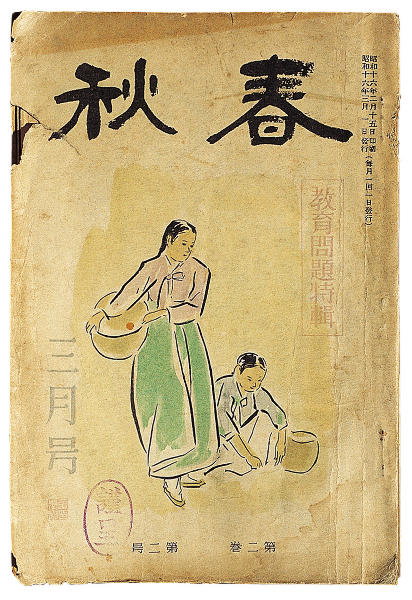 春秋
昭和十六年二月十五日印刷
昭和十六年三月一日發行(每月一回一日發行)
教育問題特輯
三月号
第二巻 第二号